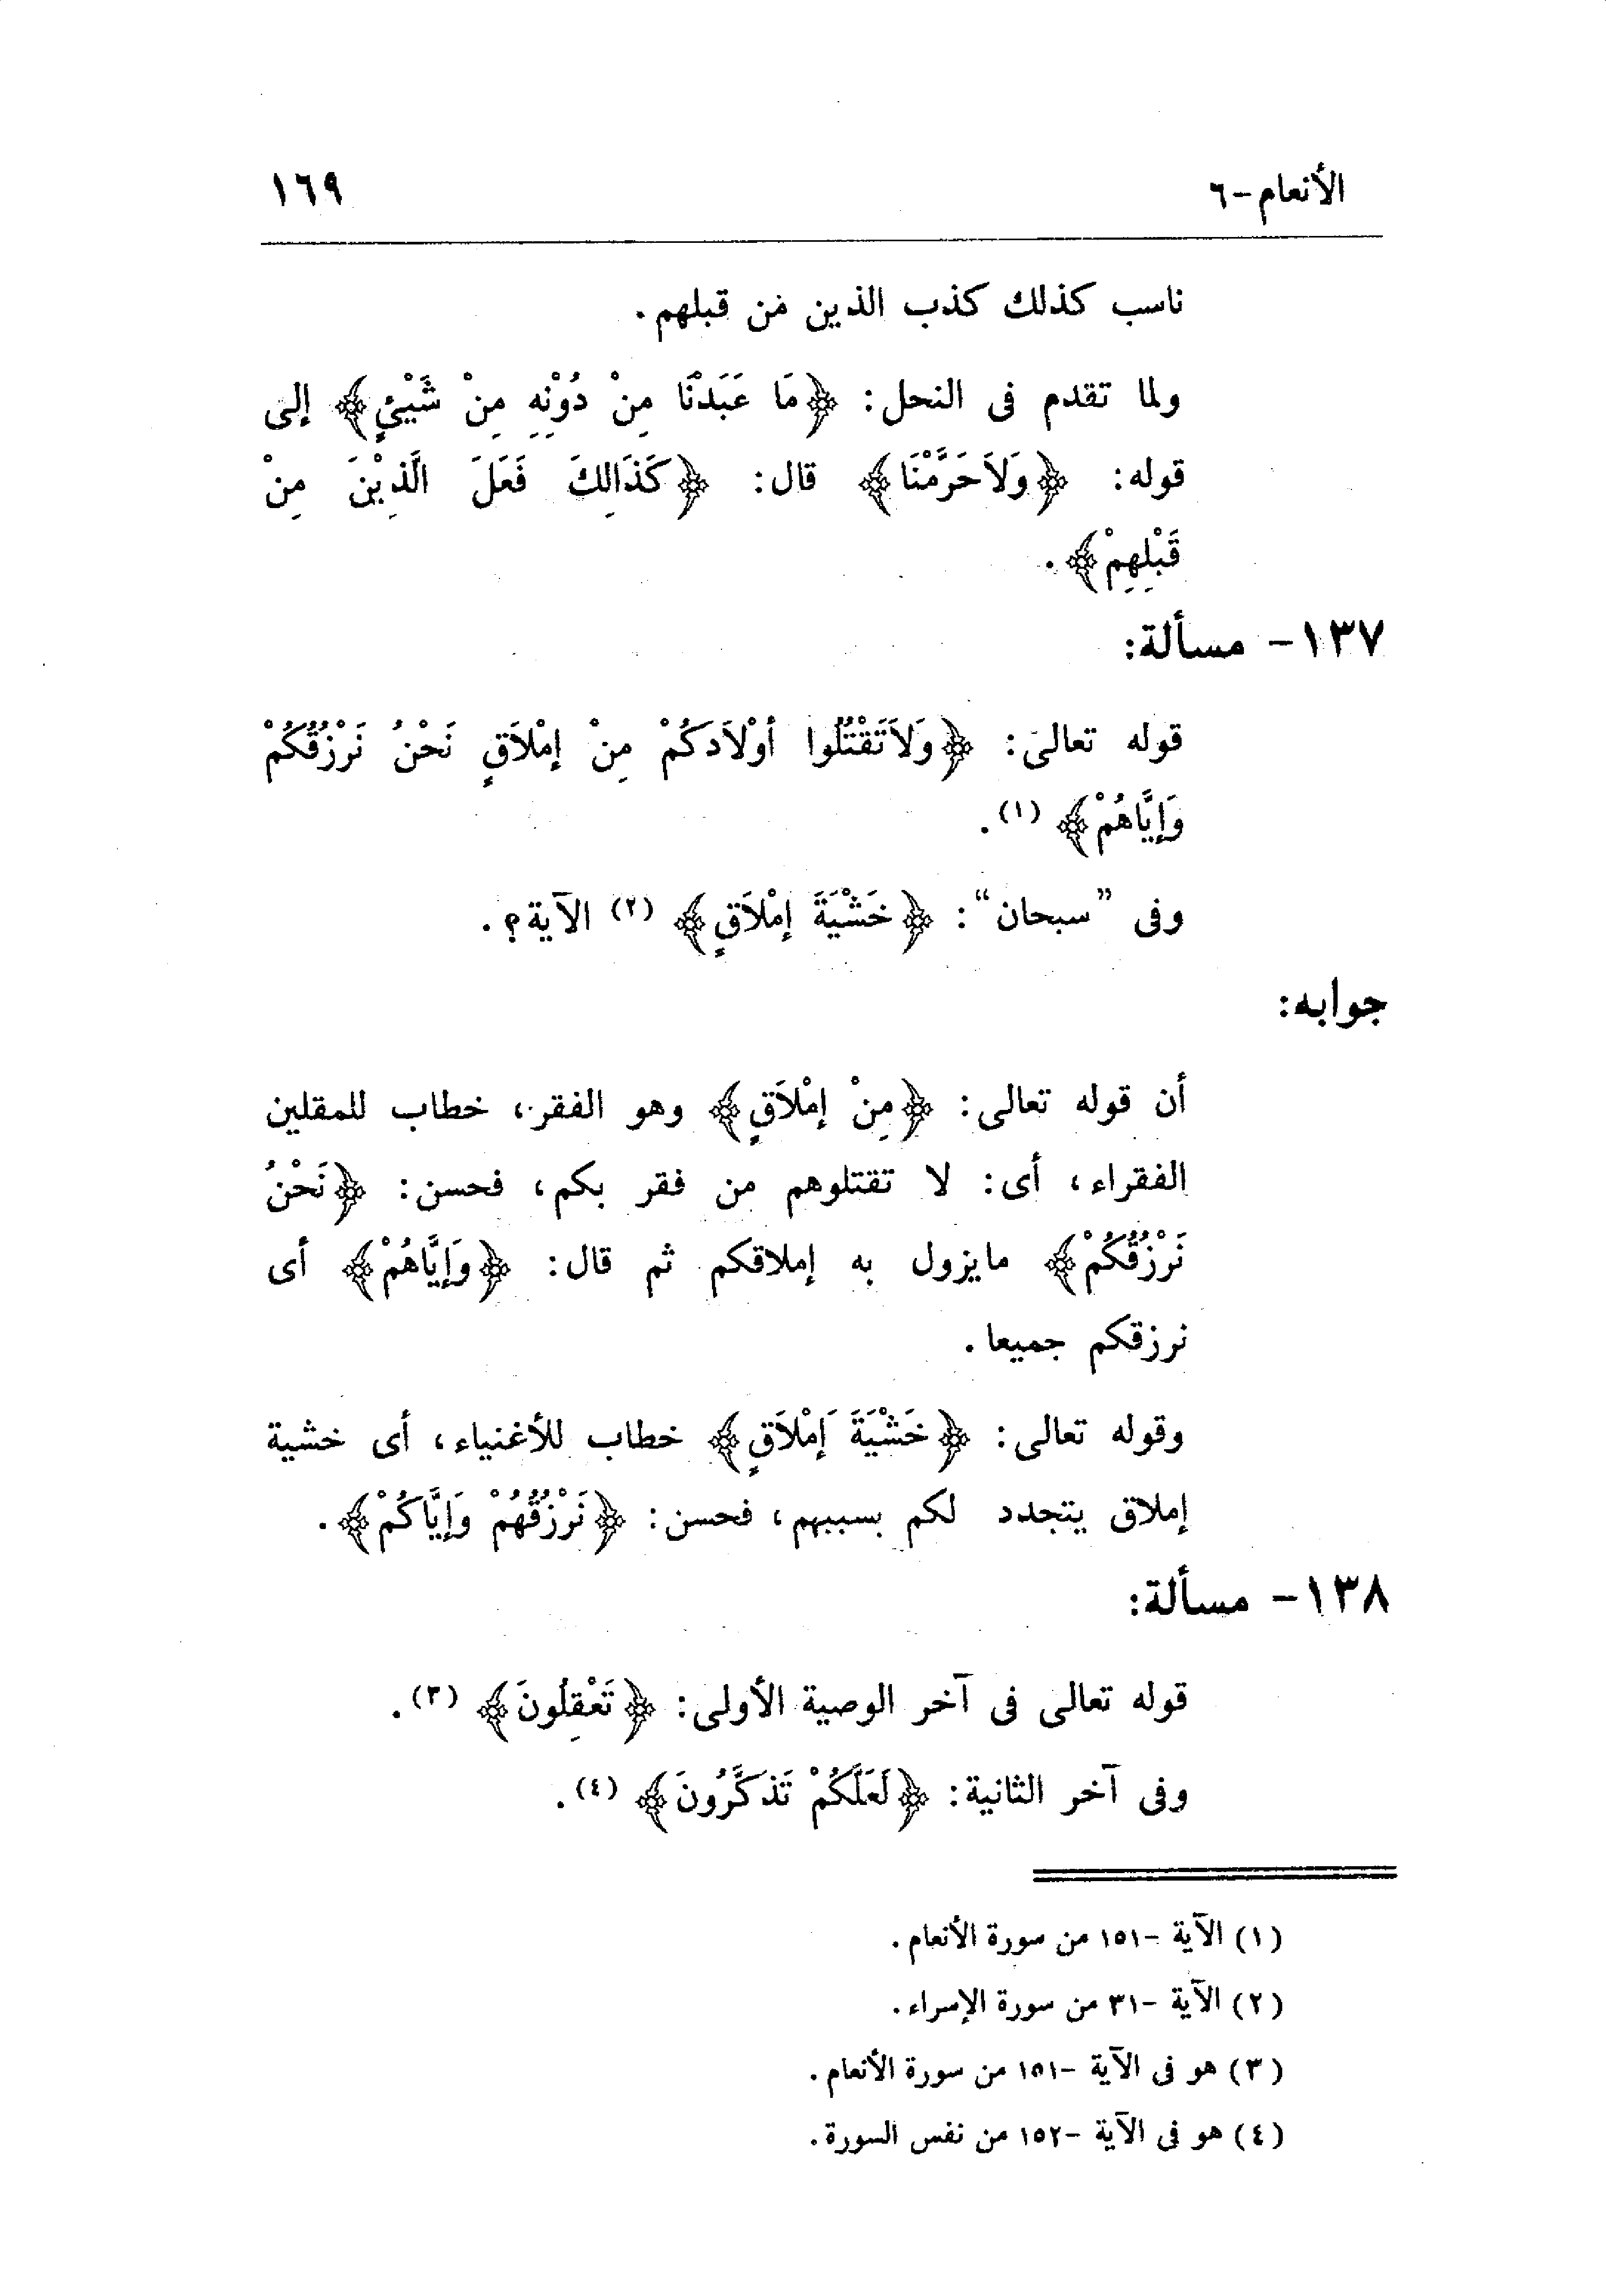 الأنعام-٦ ١٦٩
ناسب كذلك كذب الذين من قبلهم.
ولما تقدم فى النحل: ﴿مَا عَبَدْنَا مِنْ دُوْنِهِ مِنْ شَيْئٍ﴾ إلى
قوله: ﴿وَلاَحَرَّمْنَا﴾ قال: ﴿كَذَالِكَ فَعَلَ الَّذِيْنَ مِنْ
قَبْلِهِمْ﴾.
١٣٧- مسألة:
قوله تعالى: ﴿وَلاَتَقْتُلُوا أوْلاَدَكُمْ مِنْ إمْلاَقٍ نَحْنُ نَرْزُقُكُمْ
وَإيَّاهُمْ﴾ (١).
وفى ”سبحان“: ﴿خَشْيَةَ إمْلاَقٍ﴾ (٢) الآية؟.
جوابه:
أن قوله تعالى: ﴿مِنْ إمْلاَقٍ﴾ وهو الفقر، خطاب للمقلين
الفقراء، أى: لا تقتلوهم من فقر بكم، فحسن: ﴿نَحْنُ
نَرْزُقُكُمْ﴾ مايزول به إملاقكم ثم قال: ﴿وَإيَّاهُمْ﴾ أى
نرزقكم جميعا.
وقوله تعالى: ﴿خَشْيَةَ إمْلاَقٍ﴾ خطاب للأغنياء، أى خشية
إملاق يتجدد لكم بسببهم، فحسن: ﴿نَرْزُقُهُمْ وَإيَّاكُمْ﴾.
١٣٨- مسألة:
قوله تعالى فى آخر الوصية الأولى: ﴿تَعْقِلُونَ﴾ (٣).
وفى آخر الثانية: ﴿لَعَلَّكُمْ تَذَكَّرُونَ﴾ (٤).
(١) الآية -١٥١ من سورة الأنعام.
(٢) الآية -٣١ من سورة الإسراء.
(٣) هو فى الآية -١٥١ من سورة الأنعام.
(٤) هو فى الآية -١٥٢ من نفس السورة.